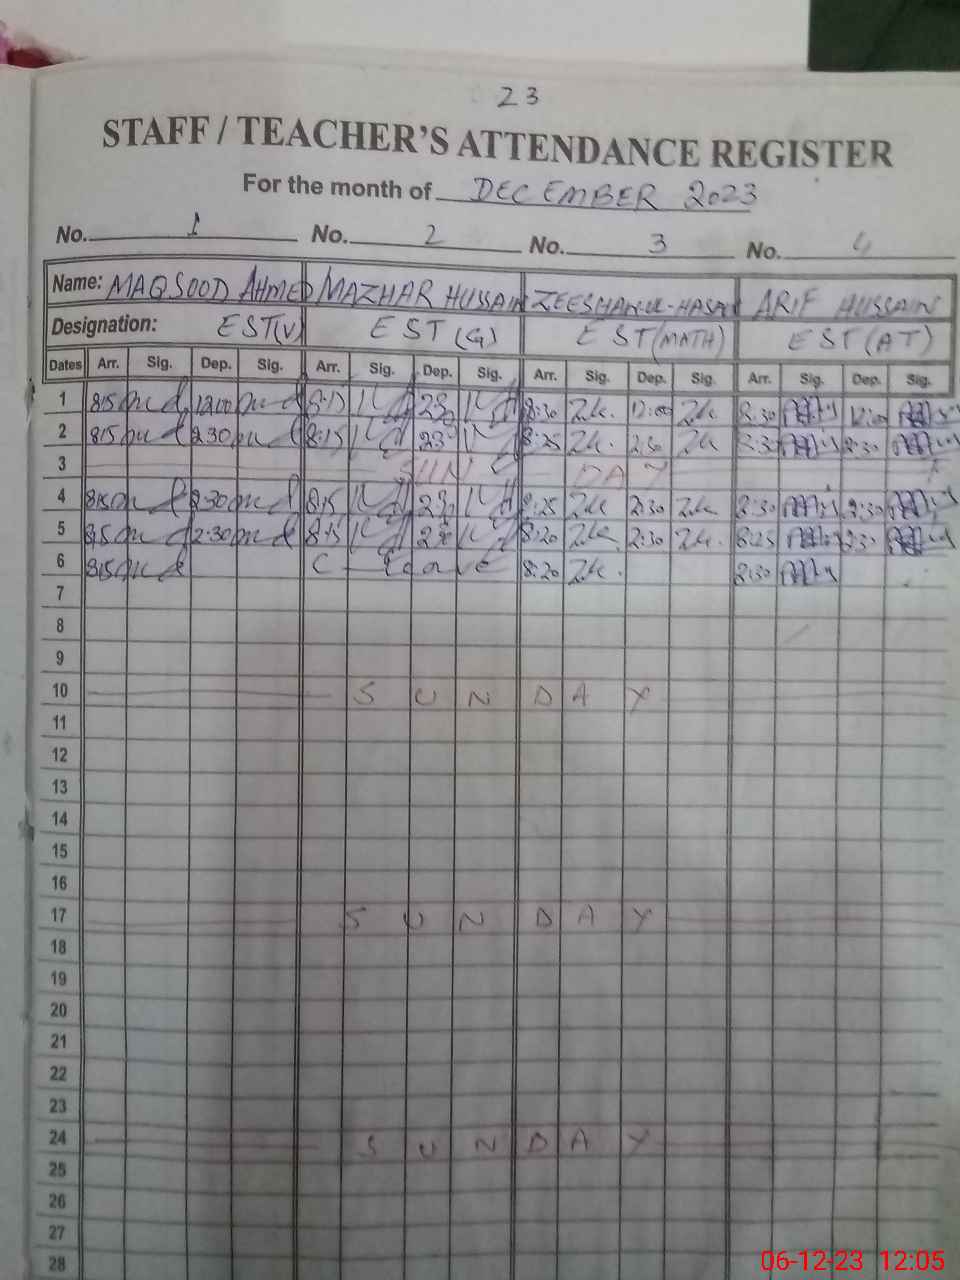 23
STAFF / TEACHER'S ATTENDANCE REGISTER
For the month of DECEMBER 2023
No. 1 No. 2 No. 3 No. 4
Name: MAQSOOD AHMED MAZHAR HUSSAIN ZEESHAN-UL-HASAN ARIF HUSSAIN
Designation: EST(V) EST(G) EST(MATH) EST(AT)
Dates Arr. Sig. Dep. Sig. Arr. Sig. Dep. Sig. Arr. Sig. Dep. Sig. Arr. Sig. Dep. Sig.
1 815 1200 8:15 230 8:30 12:00 8:30 12:00
2 815 230 8:15 230 8:25 2:30 8:30 2:30
3 SUN DAY
4 815 2:30 8:15 230 8:25 2:30 8:30 2:30
5 815 2:30 8:15 230 8:20 2:30 8:25 2:30
6 815 C-leave 8:20 8:30
7
8
9
10 SUNDAY
11
12
13
14
15
16
17 SUNDAY
18
19
20
21
22
23
24 SUNDAY
25
26
27
28
06-12-23 12:05